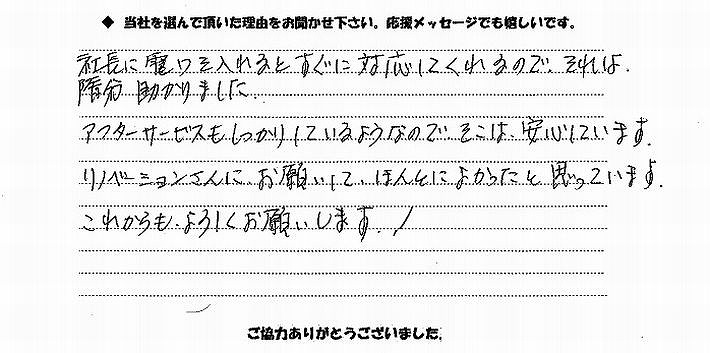 ◆ 当社を選んで頂いた理由をお聞かせ下さい。応援メッセージでも嬉しいです。
社長に電口を入れるとすぐに対応してくれるので、それは、
随分助かりました。
アフターサービスもしっかりしているようなので、そこは、安心しています。
リノベーションさんに、お願いして、ほんとによかったと思っています。
これからも、よろしくお願いします。!
ご協力ありがとうございました。